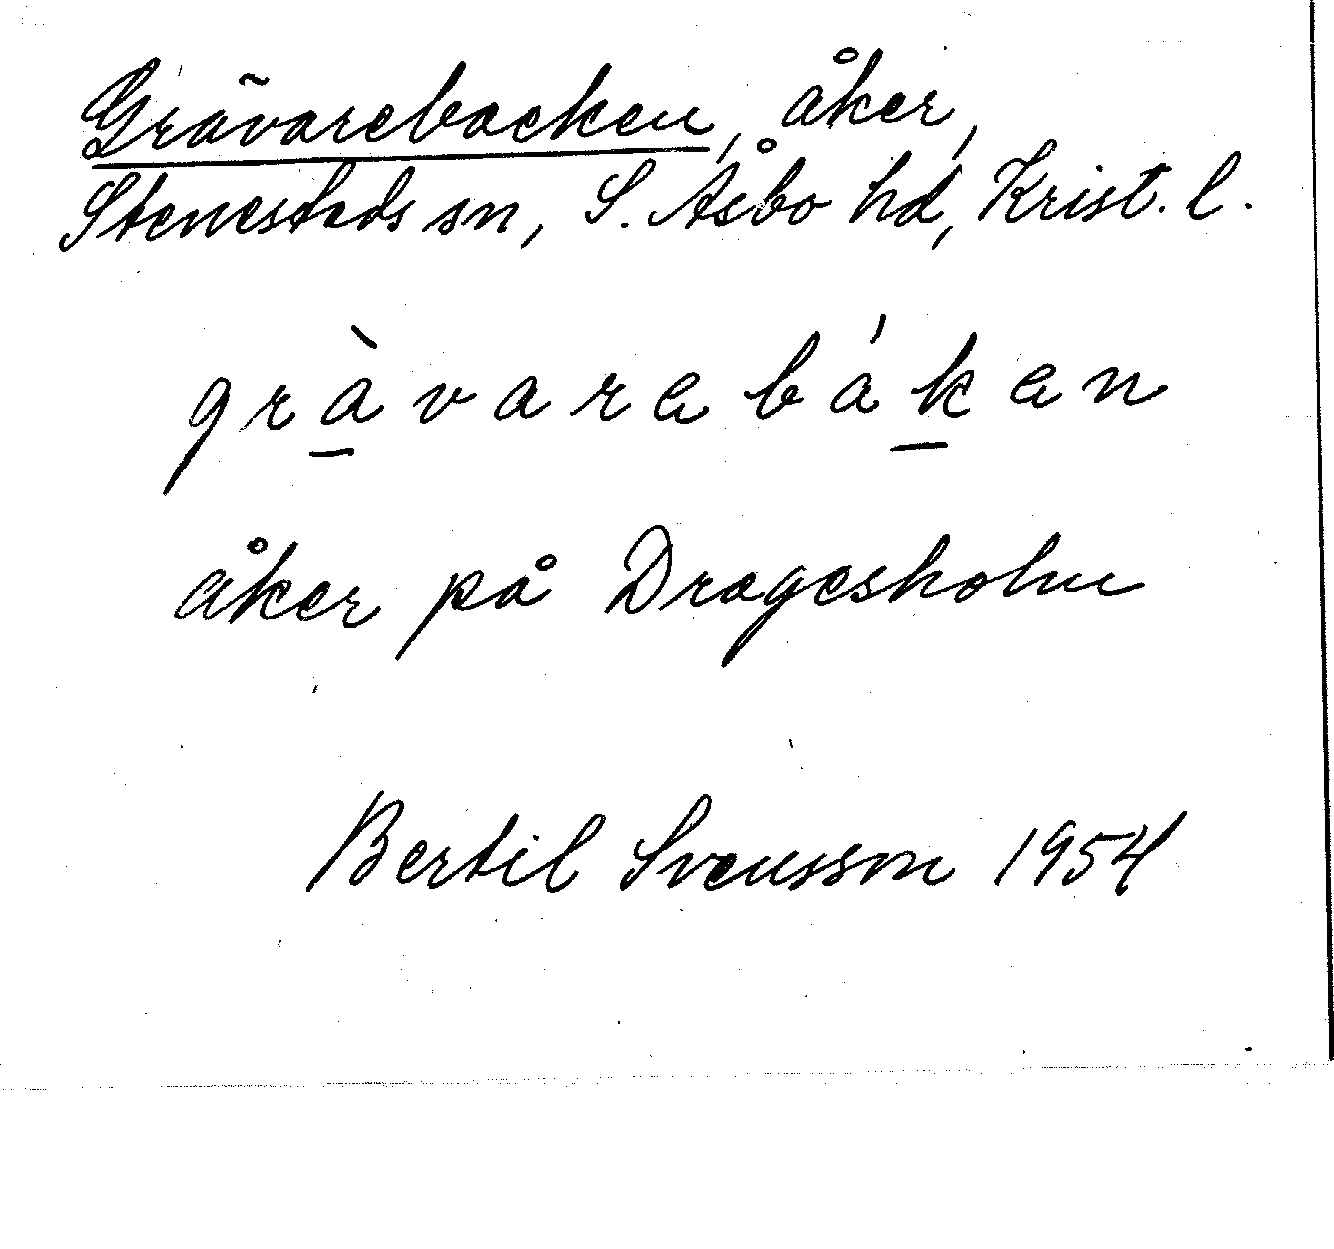 Grävarebacken, åker,
Stenestads sn, S. Åsbo hd, Krist. l.
gràvarebákan
åker på Dragesholm
Bertil Svensson 1954